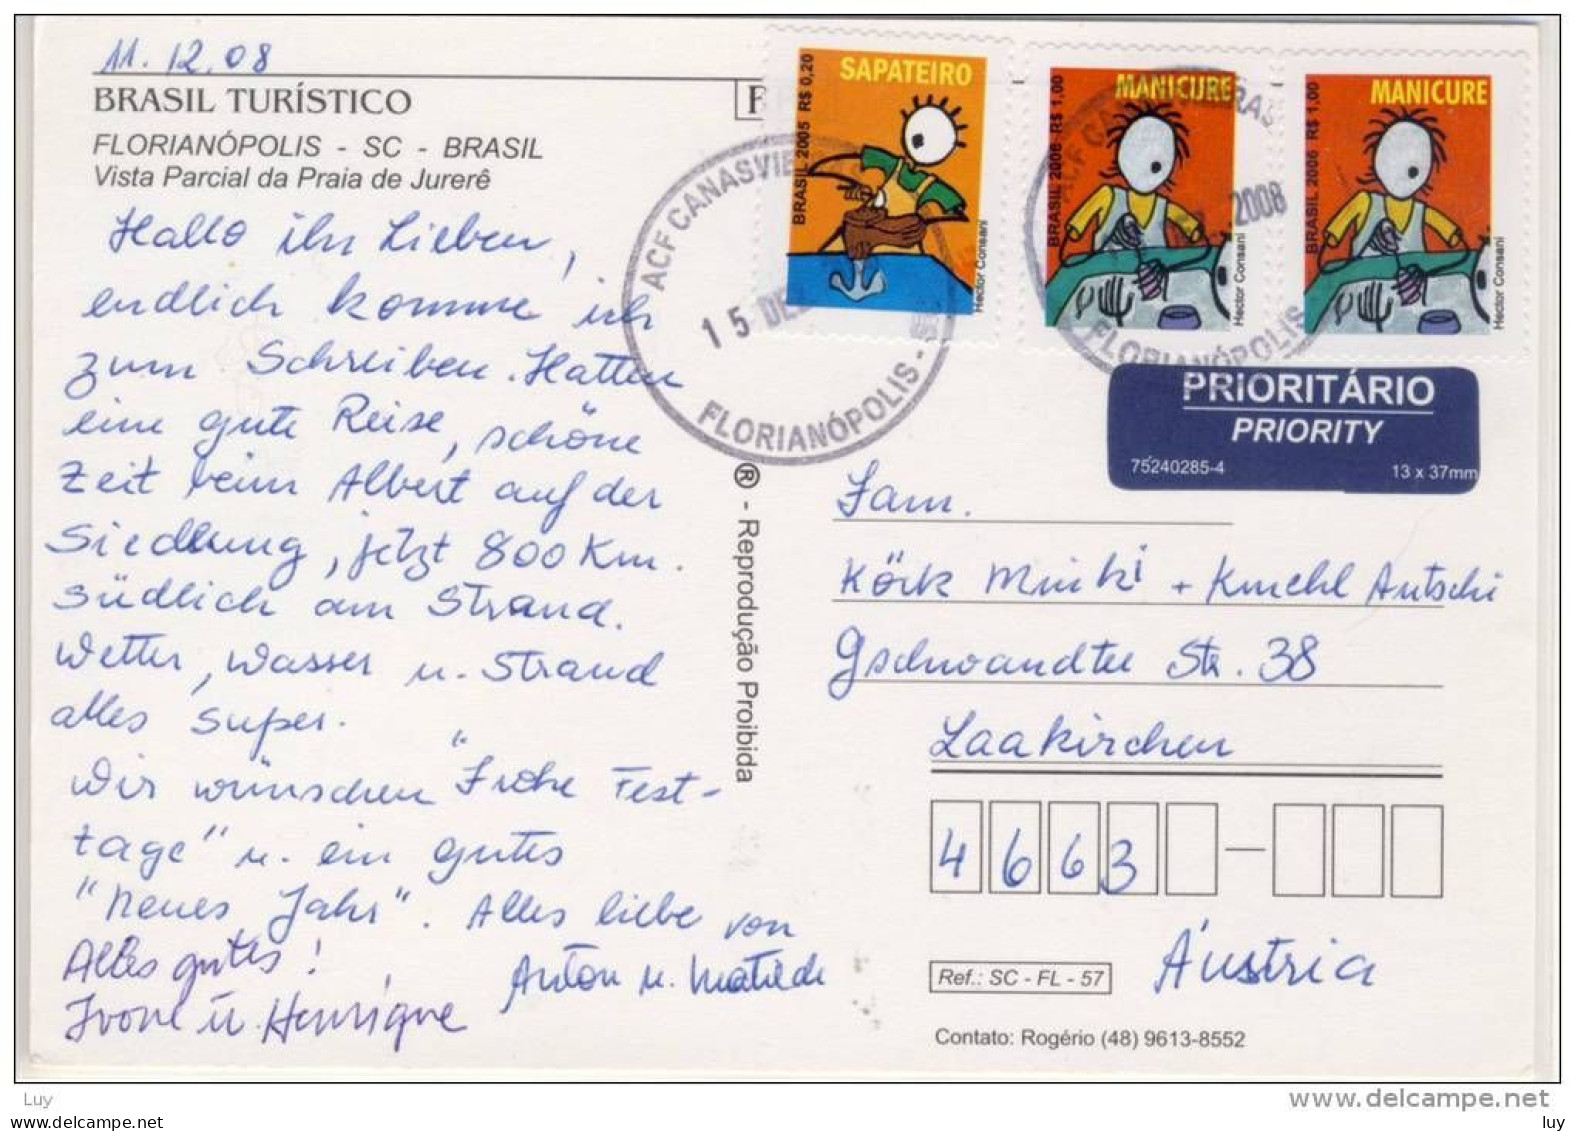 11.12.08
BRASIL TURÍSTICO
FLORIANÓPOLIS - SC - BRASIL
Vista Parcial da Praia de Jurerê
Hallo ihr Lieben,
endlich komme ich
zum Schreiben. Hatten
eine gute Reise, schöne
Zeit beim Albert auf der
Siedlung, jetzt 800 Km.
südlich am Strand.
Wetter, Wasser u. Strand
alles super.
Wir wünschen "Frohe Fest-
tage" u. ein gutes
"Neues Jahr". Alles liebe von
Anton u. Matilde
Alles gutes!
Ivone u. Henrique
® - Reprodução Proibida
SAPATEIRO
BRASIL 2005 R$ 0,20
Hector Consani
MANICURE
BRASIL 2006 R$ 1,00
Hector Consani
MANICURE
BRASIL 2006 R$ 1,00
Hector Consani
ACF CANASVIE
15 DE
FLORIANÓPOLIS -
ACF CA
2008
FLORIANÓPOLIS
PRIORITÁRIO
PRIORITY
75240285-4 13 x 37mm
Fam.
Körk Minki + Antschi
Gschwandter Str. 38
Laakirchen
4663
Austria
Ref.: SC - FL - 57
Contato: Rogério (48) 9613-8552
Luy
www.delcampe.net
luy
www.delcampe.net